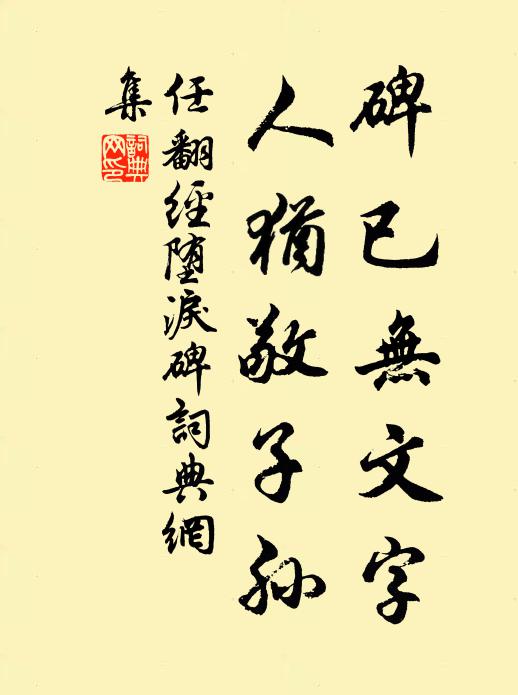 碑已無文字
人猶敬子孫
任翻經墮淚碑詞典網
集
詞典網印